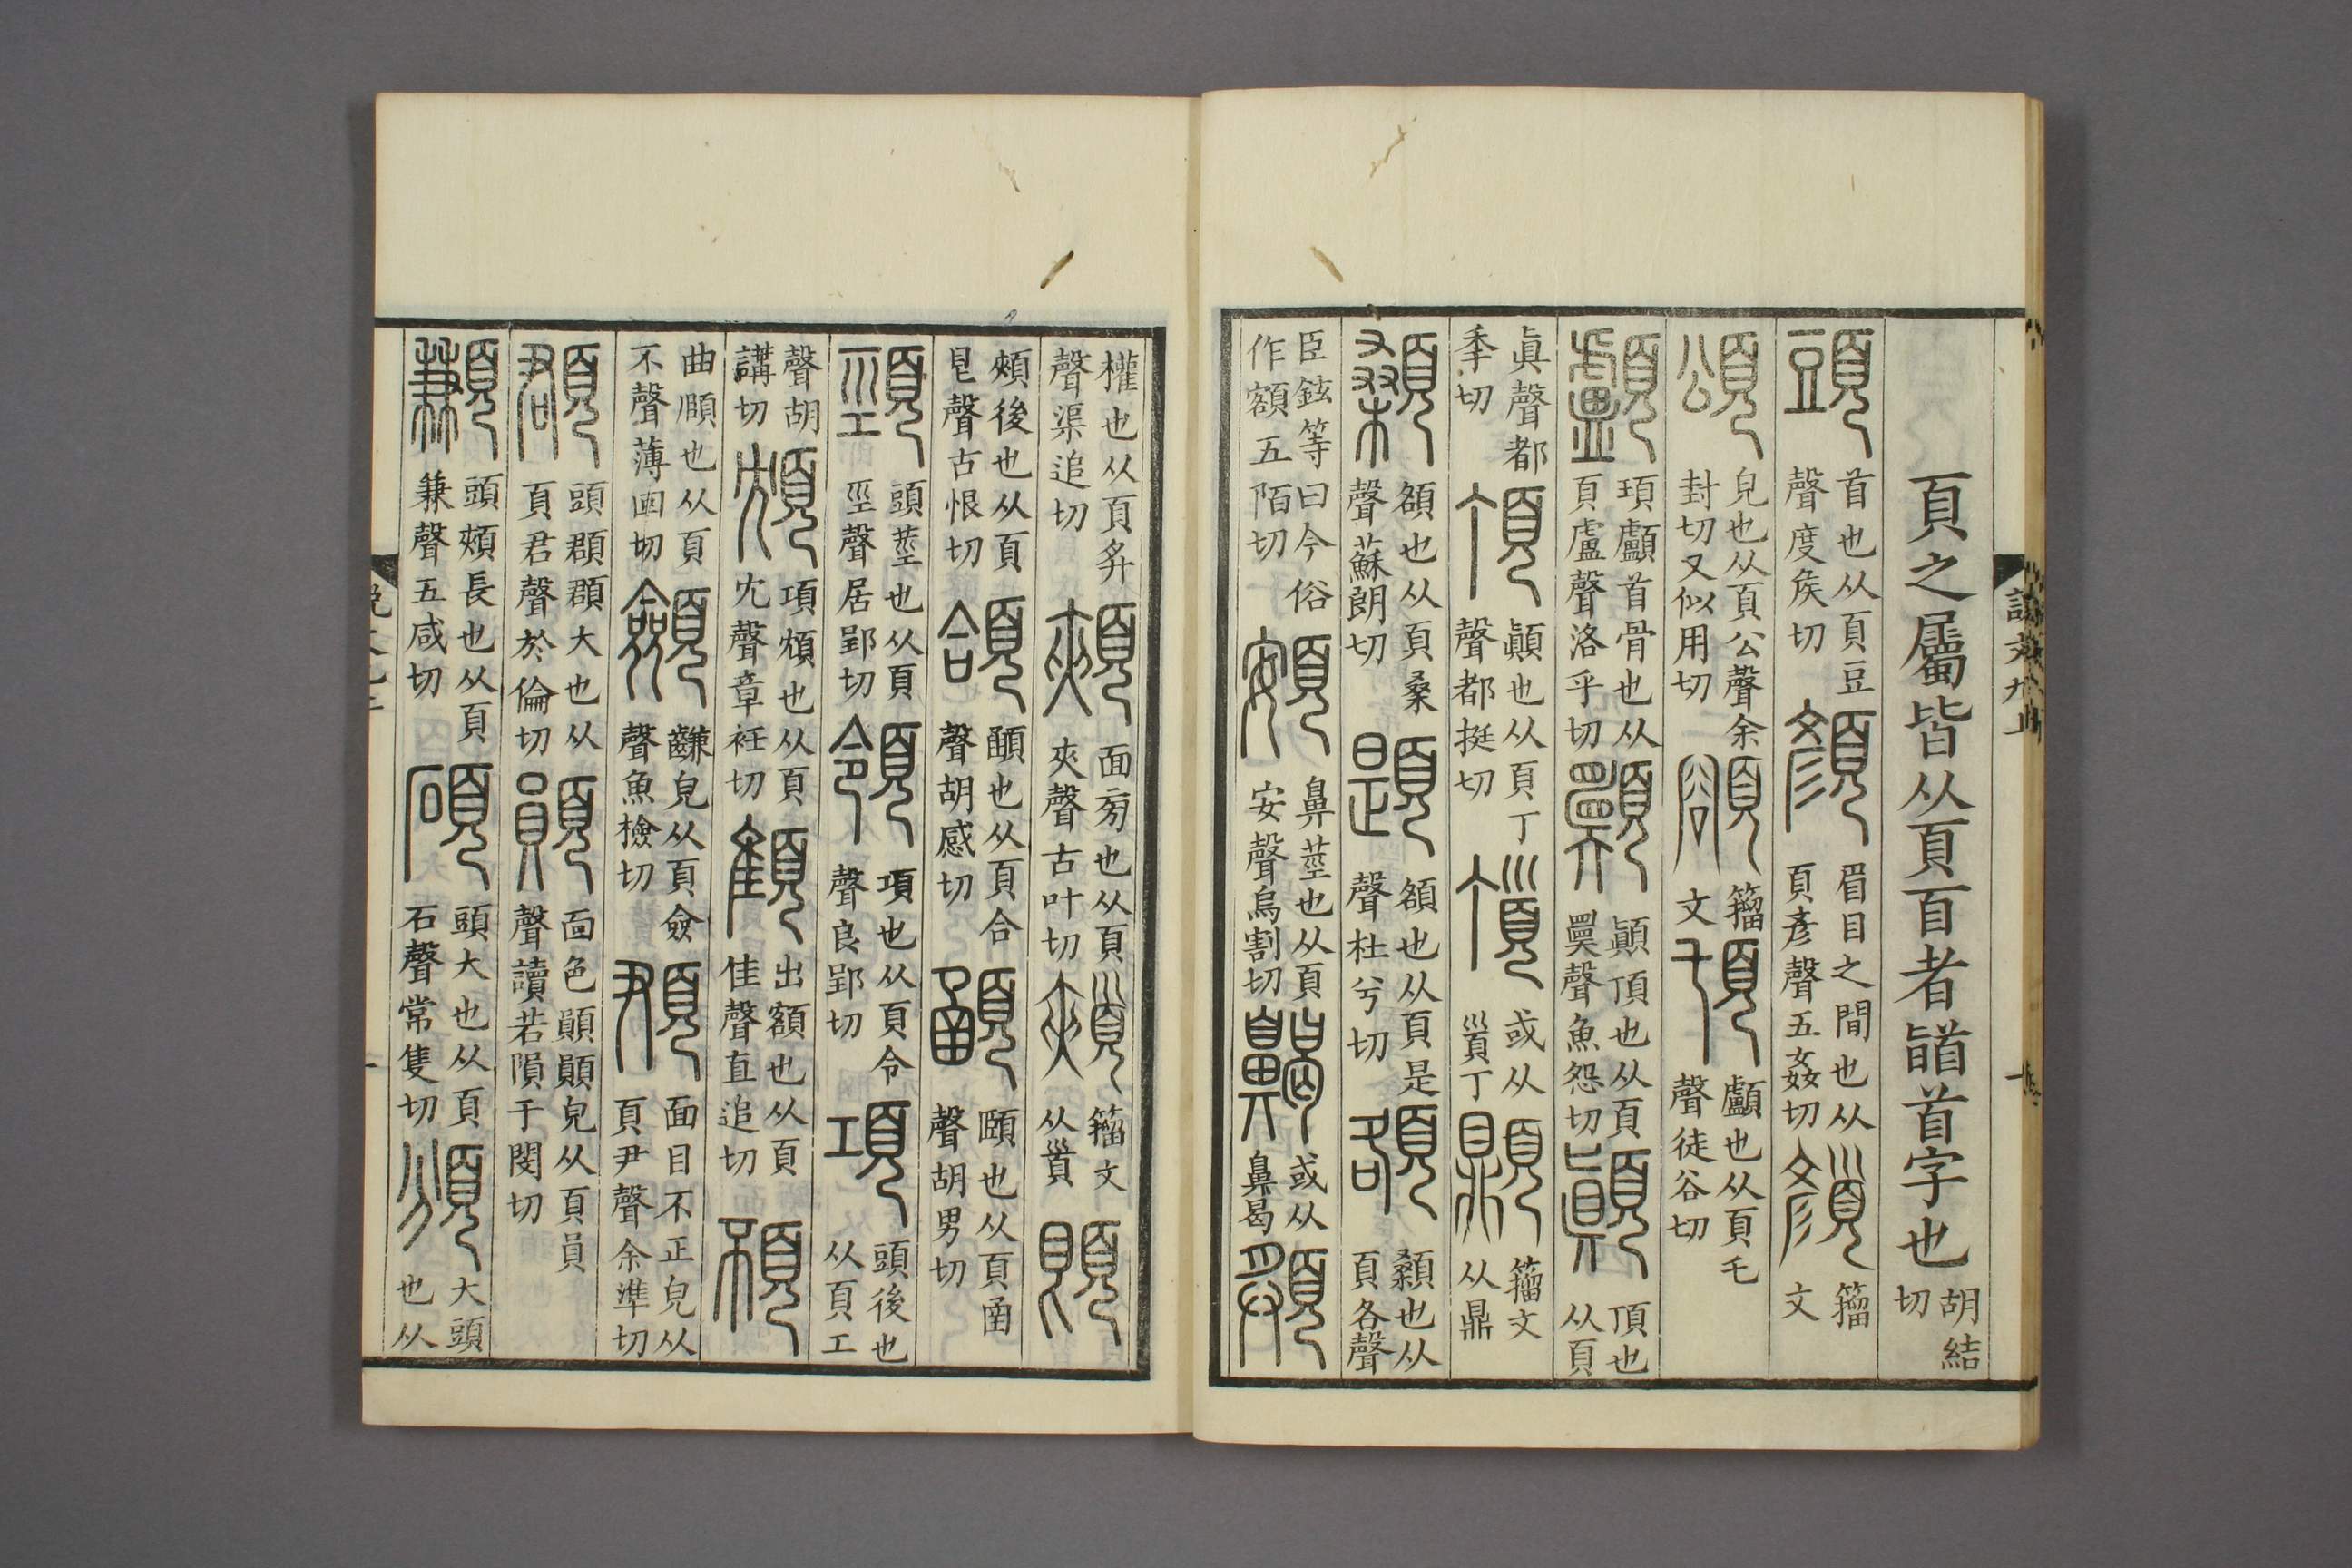 說文九上
頁之屬皆从頁𦣻者䭫首字也胡結切
頭首也从頁豆聲度矦切顏眉目之間也从頁彥聲五姦切𩕝籒文
頌皃也从頁公聲余封切又似用切𩔜籒文𩑒顱也从頁乇聲徒谷切
顱䪼顱首骨也从頁盧聲洛乎切𩕾顚頂也从頁㬱聲魚怨切顚頂也从頁
眞聲都秊切頂顚也从頁丁聲都挺切𩠑或从𩠐丁𩕢籒文从鼎
顙頟也从頁桑聲蘇朗切題頟也从頁是聲杜兮切頟顙也从頁各聲
臣鉉等曰今俗作額五陌切頞鼻莖也从頁安聲烏割切齃或从鼻曷䫜
權也从頁𢍏聲渠追切頰面㫄也从頁夾聲古叶切𩠣籒文从𩠐頣
頰後也从頁㫐聲古恨切頜顄也从頁合聲胡感切顄頤也从頁圅聲胡男切
頸頭莖也从頁巠聲居郢切領項也从頁令聲良郢切項頭後也从頁工
聲胡講切䪴項煩也从頁冘聲章衽切顀出額也从頁隹聲直追切䫠
曲頤也从頁不聲薄回切顩䶢皃从頁僉聲魚檢切䪳面目不正皃从頁尹聲余準切
頵頭頵頵大也从頁君聲於倫切䫟面色顚顚皃从頁員聲讀若隕于閔切
䫡頭頰長也从頁兼聲五咸切碩頭大也从頁石聲常隻切頒大頭也从